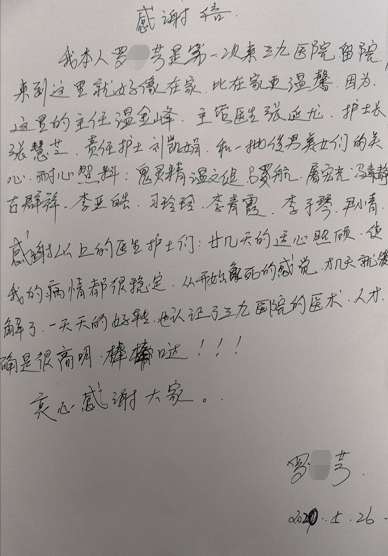 感谢信
我本人罗芳是第一次来三九医院留院,
来到这里就好像在家,比在家更温馨,因为
这里的主任温金峰、主管医生张延龙、护士长
张慧芝、责任护士刘凯娟,和一批俊男美女们的关
心、耐心照料:温之健、吕翠航、
古群祥、李亚皓、习玲玲、李青霞、李于琴、尹小青,
感谢以上的医生护士们:廿几天的进心照顾,使
我的病情都很稳定,从开始的感觉,才几天就缓
解了,一天天的好转,也认证了三九医院的医术、人才,
确是很高明,棒棒哒!!!
衷心感谢大家。
罗芳
2020.5.26